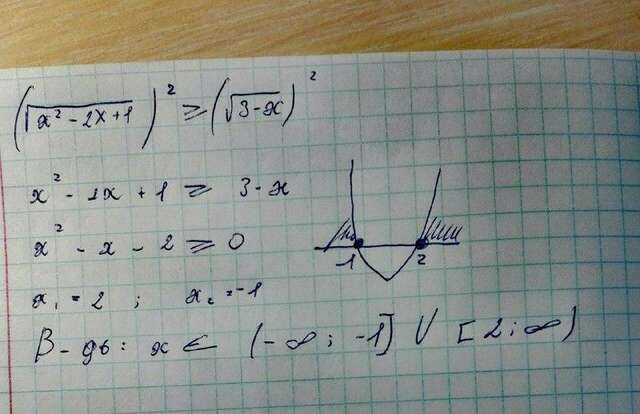 (√(x² - 2x + 1))² ≥ (√(3 - x))²
x² - 2x + 1 ≥ 3 - x
x² - x - 2 ≥ 0
-1 2
x₁ = 2 ; x₂ = -1
В-дь: x ∈ (-∞ ; -1] ∪ [2 ; ∞)